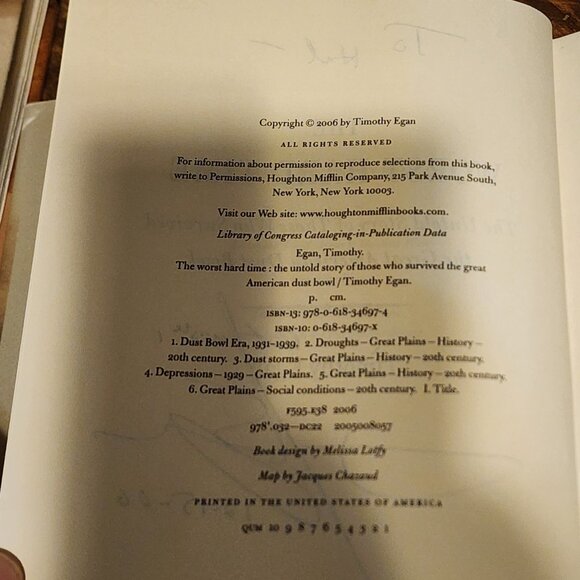 To Hal —
Copyright © 2006 by Timothy Egan
ALL RIGHTS RESERVED
For information about permission to reproduce selections from this book,
write to Permissions, Houghton Mifflin Company, 215 Park Avenue South,
New York, New York 10003.
Visit our Web site: www.houghtonmifflinbooks.com.
Library of Congress Cataloging-in-Publication Data
Egan, Timothy.
The worst hard time : the untold story of those who survived the great
American dust bowl / Timothy Egan.
p. cm.
ISBN-13: 978-0-618-34697-4
ISBN-10: 0-618-34697-X
1. Dust Bowl Era, 1931–1939. 2. Droughts — Great Plains — History —
20th century. 3. Dust storms — Great Plains — History — 20th century.
4. Depressions — 1929 — Great Plains. 5. Great Plains — History — 20th century.
6. Great Plains — Social conditions — 20th century. I. Title.
F595.E38 2006
978'.032—DC22 2005008057
Book design by Melissa Lotfy
Map by Jacques Chazaud
PRINTED IN THE UNITED STATES OF AMERICA
QUM 10 9 8 7 6 5 4 3 2 1